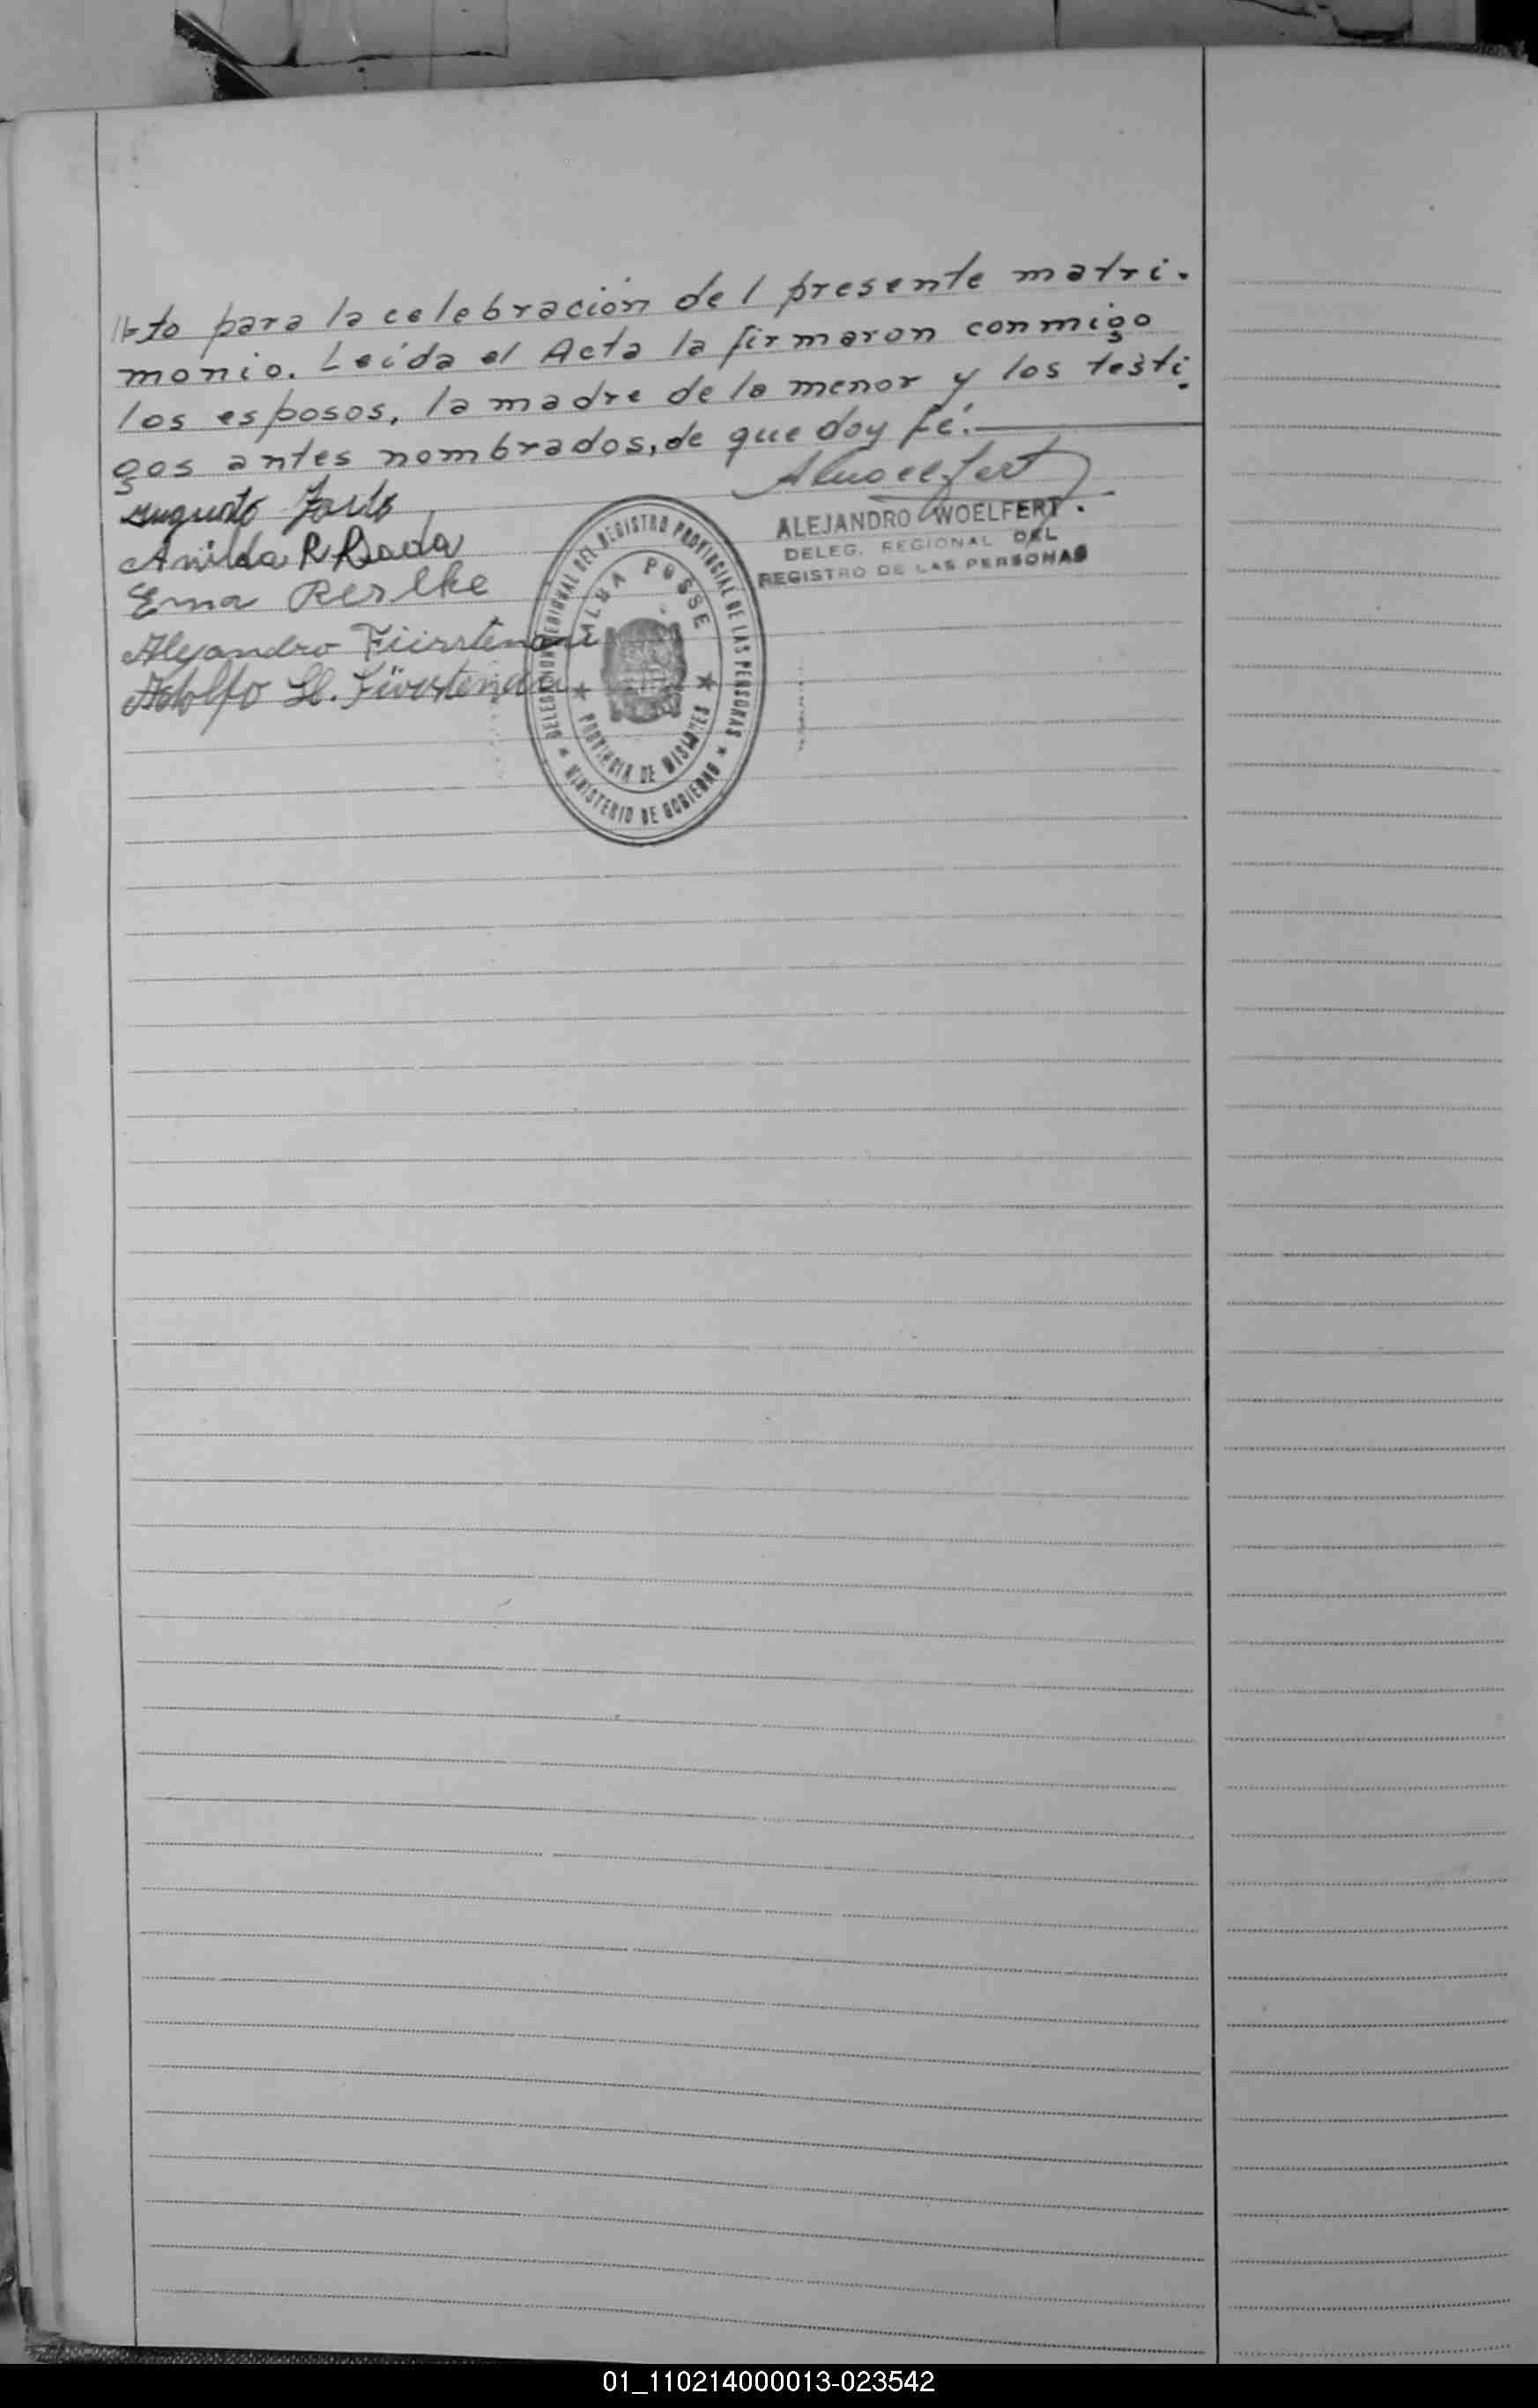 to para la celebración del presente matri-
monio. Leída el Acta la firmaron conmigo
los esposos, la madre de la menor y los testi-
gos antes nombrados, de que doy fé.
Augusto
Anilda R
Erna
Alejandro Fürstenau
Adolfo Fürstenau
ALEJANDRO WOELFERT
DELEG. REGIONAL DEL
REGISTRO DE LAS PERSONAS
DELEGACION REGIONAL DEL REGISTRO PROVINCIAL DE LAS PERSONAS
ALBA POSSE
PROVINCIA DE MISIONES
MINISTERIO DE GOBIERNO
01_110214000013-023542